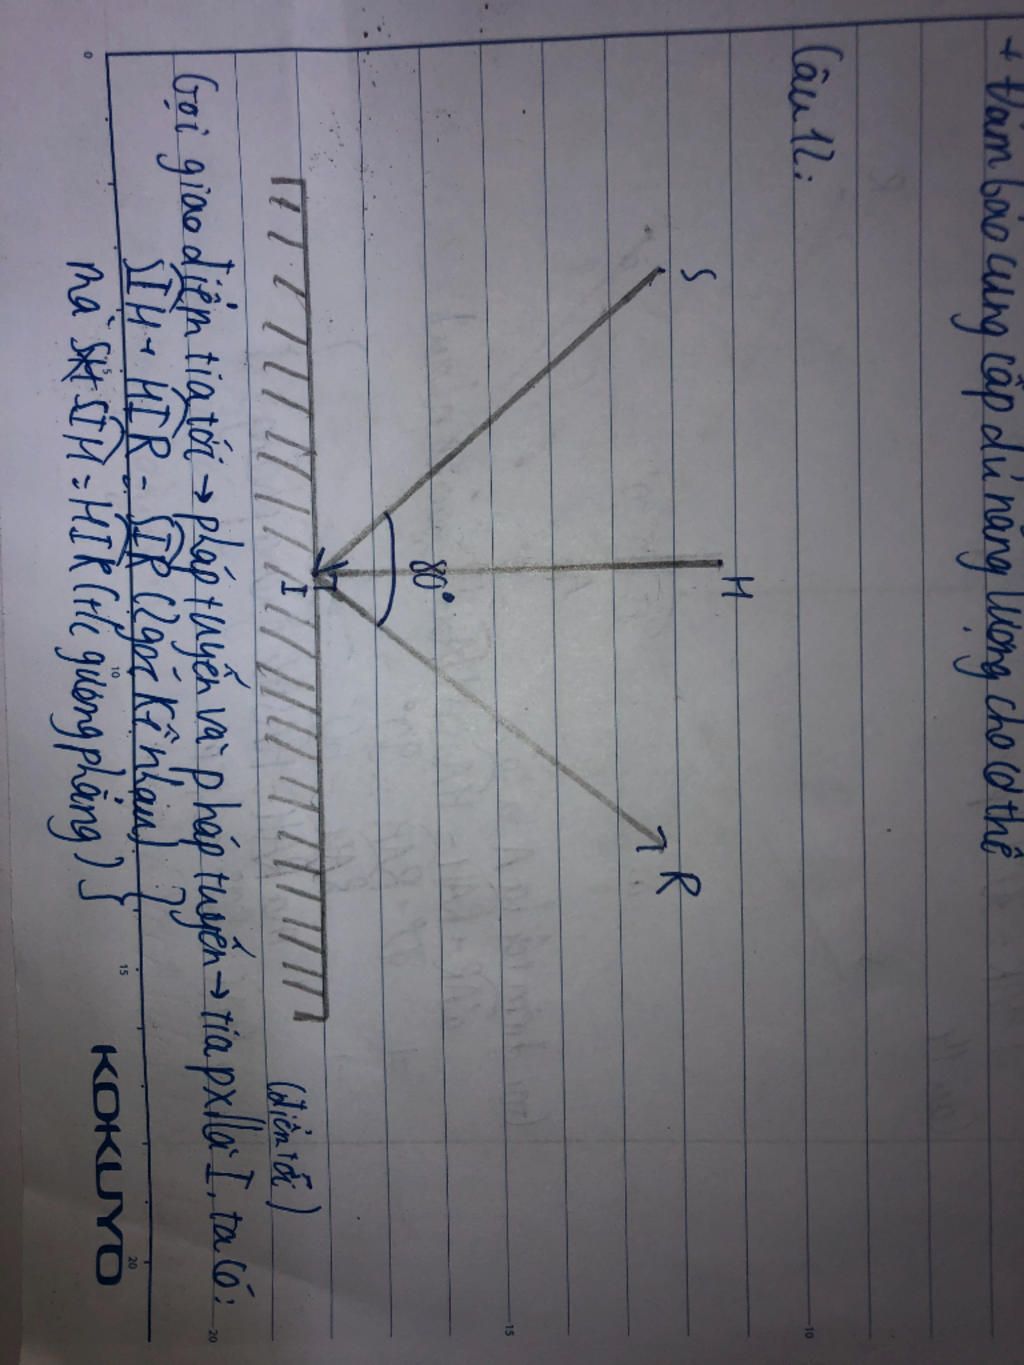 + Đảm bảo cung cấp đủ năng lượng cho cơ thể
Câu 12:
S
H
R
80°
I
(điểm tới)
Gọi giao điểm tia tới → pháp tuyến và pháp tuyến → tia px là I, ta có:
SIH + HIR = SIR (2 góc kề nhau)
mà SIH = HIR (t/c gương phẳng)
0
5
10
15
20
KOKUYO
10
15
20